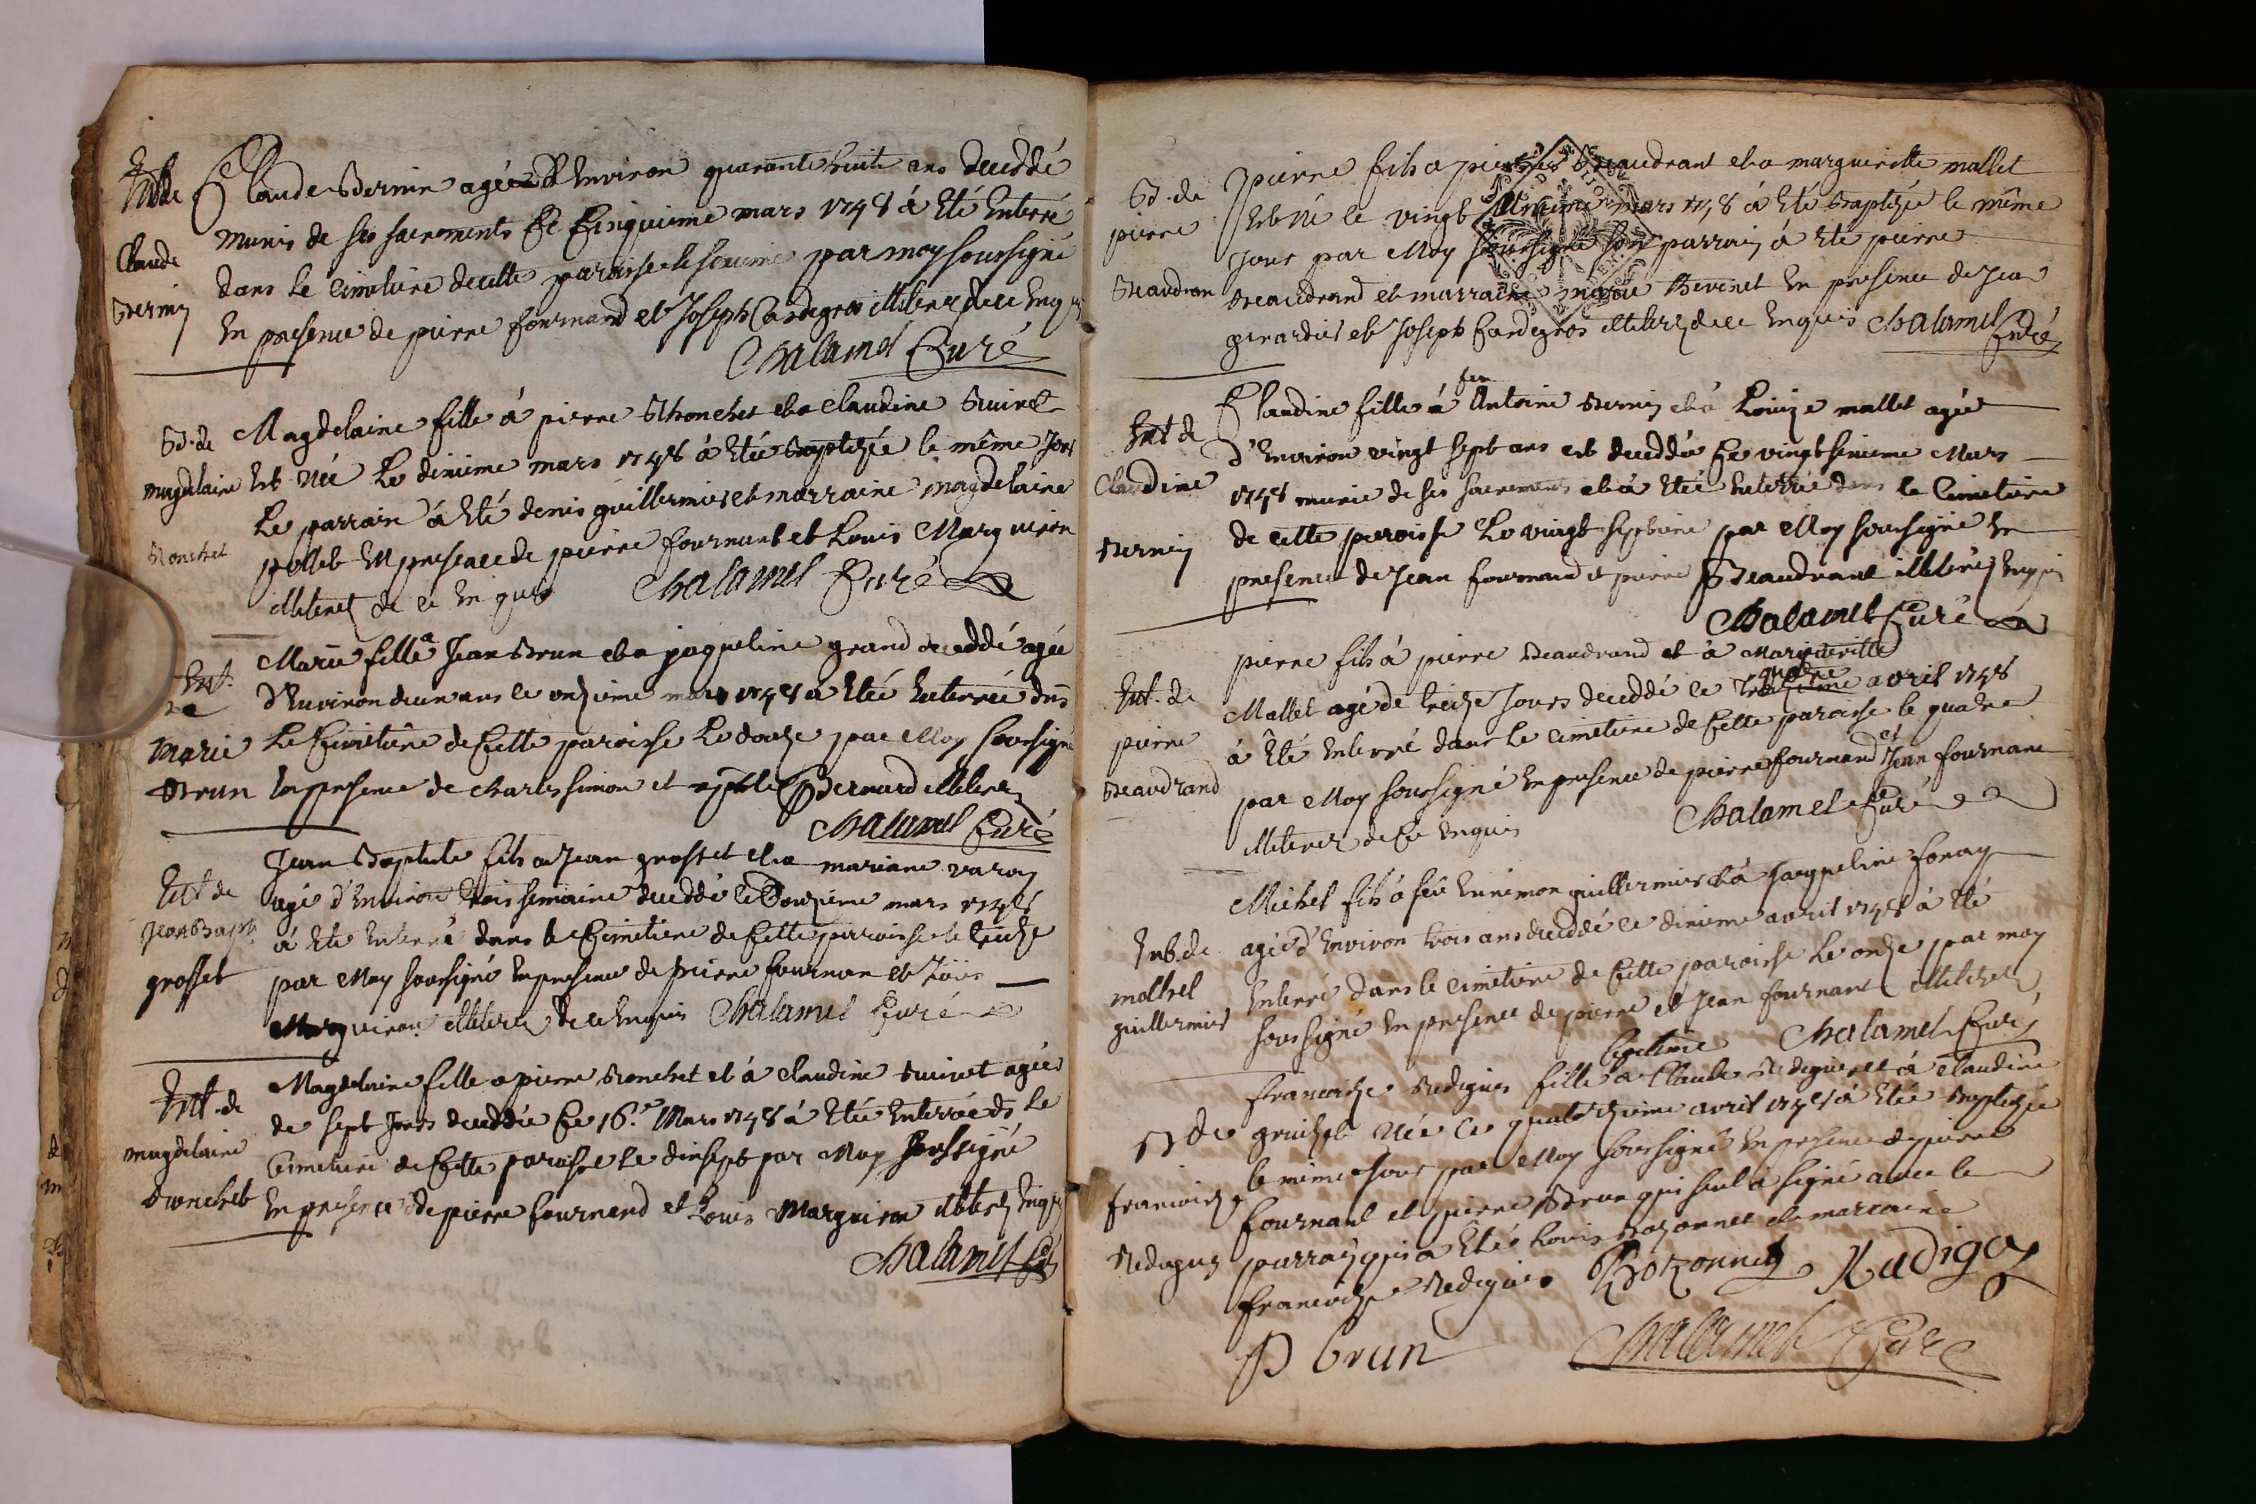 Ent. de
Claude
Bernin
Claude Bernin agé d'Environ quarante huit ans decedé
munis de ses sacrements Ce Cinquieme mars 1748 á Eté Enterré
dans le Cimetiere de cette paroisse le sixieme par moy soussigné
En presence de pierre fournand et Joseph Cardegros illiterez de ce Enquis
Chalamel Curé
B. de
magdelaine
Ronchet
Magdelaine fille á pierre Rhonchet et a Claudine Buivet
Est Née Le dixieme mars 1748 á Eté Baptizée le même Jour
Le parrain á Eté denis guillermier et marraine magdelaine
pellet En presence de pierre fournant et Louis Marguiron
illiterez de ce Enquis Chalamel Curé
Ent.
de
Marie
Brun
Marie fille a Jean Brun et a jaqueline grand decedé agée
d'Environ deux ans le onzieme mars 1748 á Etée Enterrée dans
Le Cimetiere de Cette paroisse Le douze par Moy soussigné
En presence de Charles simon et Bernard illiterez
Chalamel Curé
Ent. de
Jean Bapt.
grosset
Jean Baptiste fils a Jean grosset et a mariane varon
agé d'Environ trois semaine decedé le Douzieme mars 1748
á Eté Enterré dans le Cimetiere de Cette paroisse le treize
par Moy soussigné En presence de pierre fournan et Loüis
Marguiron illiterez de ce Enquis Chalamel Curé
Ent. de
magdelaine
Ronchet
Magdelaine fille a pierre Ronchet et á Claudine Buivet agée
de sept Jours decedée Ce 16.e Mars 1748 á Etée Enterrée ds Le
Cimetiere de Cette paroisse Le dixsept par Moy soussigné
En presence de pierre fournand et Louis Marguiron illiterez Enquis
Chalamel Curé
B. de
pierre
Beaudran
pierre fils a pierre Beaudrant et a margueritte mallet
Est Né le vingt mars 1748 á Eté Baptizée le même
Jour par Moy soussigné son parrain á Eté pierre
Beaudrand et marraine marie Bevenet En presence de Jean
girardier et Joseph Cardegros illiterez de ce Enquis Chalamel Curé
Ent. de
Claudine
Bernin
Claudine fille á feu Antoine Bernin et á Louize mallet agée
d'Environ vingt sept ans est decedée Ce vingt sixieme Mars
1748 munie de ses sacrements et á Eté Enterrée dans le Cimetiere
de cette paroisse Le vingt septieme par Moy soussigné En
presence de Jean fournand et pierre Beaudrant illiterez Enquis
Chalamel Curé
Ent. de
pierre
Beaudrand
pierre fils á pierre Beaudrand et á Margueritte
Mallet agé de treize Jours decedé le troizieme avril 1748
á Êté Enterré dans Le Cimetiere de Cette paroisse le quatre
par Moy soussigné En presence de pierre fournand et Jean fournant
illiterez de Ce Enquis Chalamel Curé
Ent. de
michel
guillermier
Michel fils á feü Ennemon guillermier et á Jacqueline Foray
agé d'Environ trois ans decedé le dixieme avril 1748 á Eté
Enterré dans le Cimetiere de Cette paroisse Le onze par moy
soussigné En presence de pierre et Jean fournant illiterez
Chalamel Curé
B de
francoize
Redigue
francoize Redigue fille legitime a Claude Redigue et á Claudine
Née Ce quatorzieme avril 1748 á Etée Baptizée
le même Jour par Moy soussigné En presence de pierre
fournant et pierre Brun qui seul á signé avec le
parrain qui a Eté Louis Bozonnet et marraine
francoize Redigue Bozonnet Radigoy
P brun Chalamel Curé